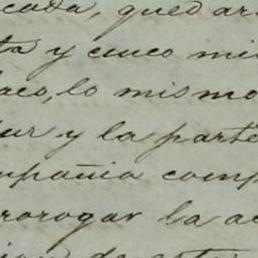 cada, quedar
ta y cinco mi
aco, lo mismo
ur y la parte
mpañia comp
rorogar la a